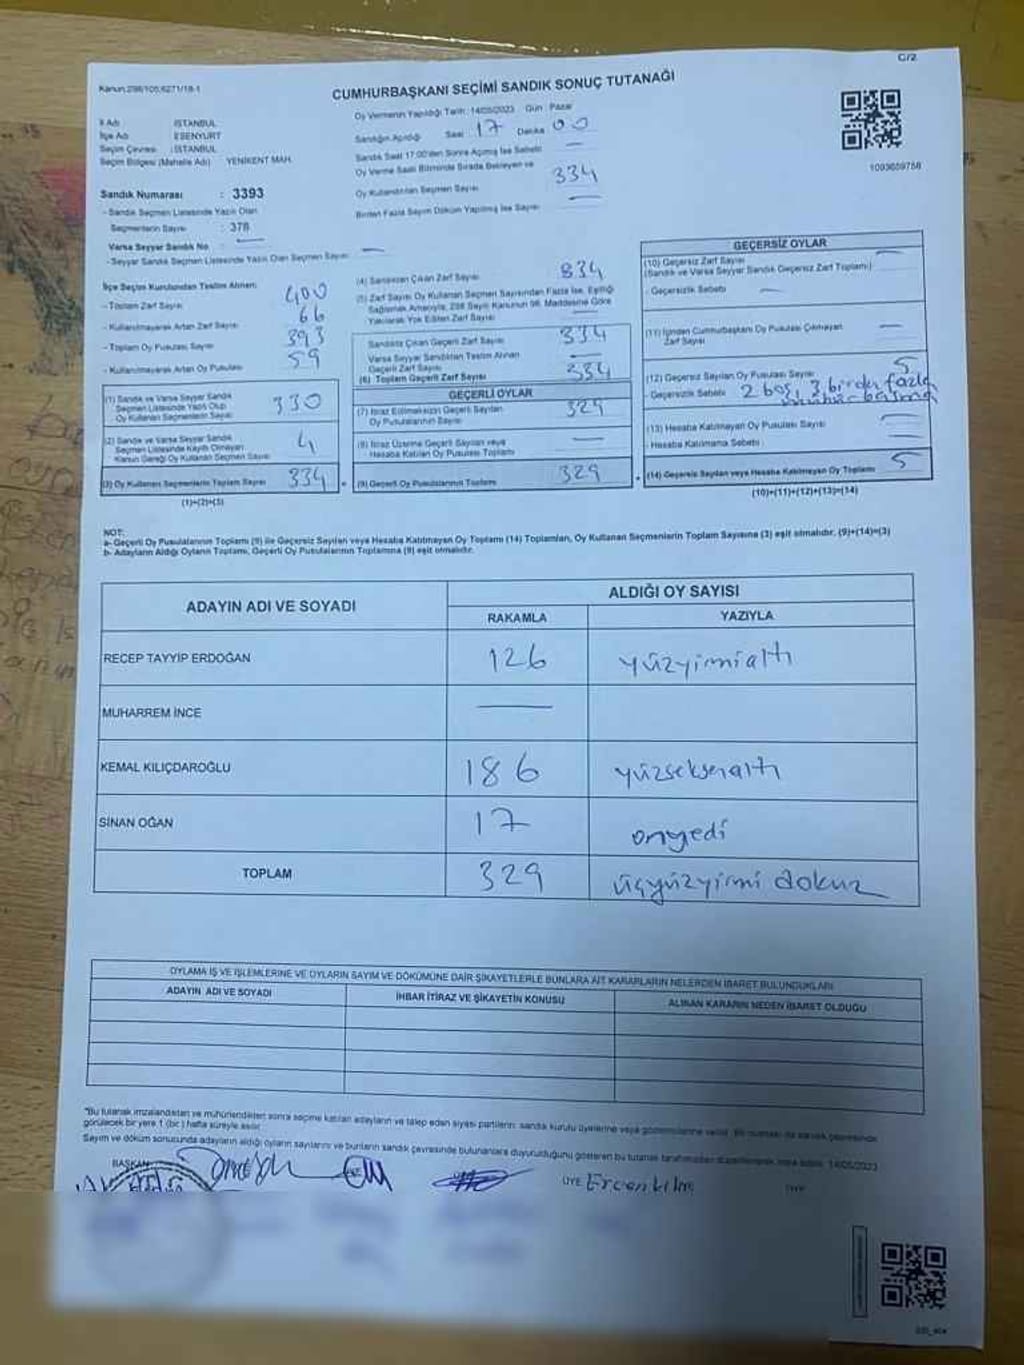 C/2
Kanun:298/105,6271/18-1
CUMHURBAŞKANI SEÇİMİ SANDIK SONUÇ TUTANAĞI
İl Adı : İSTANBUL
İlçe Adı : ESENYURT
Seçim Çevresi : İSTANBUL
Seçim Bölgesi (Mahalle Adı) YENİKENT MAH.
Sandık Numarası : 3393
- Sandık Seçmen Listesinde Yazılı Olan
Seçmenlerin Sayısı : 378
Varsa Seyyar Sandık No —
- Seyyar Sandık Seçmen Listesinde Yazılı Olan Seçmen Sayısı —
Oy Vermenin Yapıldığı Tarih: 14/05/2023 Gün: Pazar
Sandığın Açıldığı Saat 17 Dakika 00
Sandık Saat 17:00'den Sonra Açılmış İse Sebebi —
Oy Verme Saati Bitiminde Sırada Bekleyen ve
Oy Kullandırılan Seçmen Sayısı 334
Birden Fazla Sayım Döküm Yapılmış İse Sayısı —
1093659758
İlçe Seçim Kurulundan Teslim Alınan;
- Toplam Zarf Sayısı 400
- Kullanılmayarak Artan Zarf Sayısı 66
- Toplam Oy Pusulası Sayısı 393
- Kullanılmayarak Artan Oy Pusulası 59
(1) Sandık ve Varsa Seyyar Sandık
Seçmen Listesinde Yazılı Olup
Oy Kullanan Seçmenlerin Sayısı 330
(2) Sandık ve Varsa Seyyar Sandık
Seçmen Listesinde Kayıtlı Olmayan
Kanun Gereği Oy Kullanan Seçmen Sayısı 4
(3) Oy Kullanan Seçmenlerin Toplam Sayısı 334
(1)+(2)=(3)
(4) Sandıktan Çıkan Zarf Sayısı 834
(5) Zarf Sayısı Oy Kullanan Seçmen Sayısından Fazla İse, Eşitliği
Sağlamak Amacıyla, 298 Sayılı Kanunun 98. Maddesine Göre
Yakılarak Yok Edilen Zarf Sayısı —
Sandıkta Çıkan Geçerli Zarf Sayısı 334
Varsa Seyyar Sandıktan Teslim Alınan
Geçerli Zarf Sayısı —
(6) Toplam Geçerli Zarf Sayısı 334
GEÇERLİ OYLAR
(7) İtiraz Edilmeksizin Geçerli Sayılan
Oy Pusulası Sayısı 329
(8) İtiraz Üzerine Geçerli Sayılan veya
Hesaba Katılan Oy Pusulası Toplamı —
(9) Geçerli Oy Pusulalarının Toplamı 329
GEÇERSİZ OYLAR
(10) Geçersiz Zarf Sayısı
(Sandık ve Varsa Seyyar Sandık Geçersiz Zarf Toplamı) —
- Geçersizlik Sebebi —
(11) İçinden Cumhurbaşkanı Oy Pusulası Çıkmayan
Zarf Sayısı —
(12) Geçersiz Sayılan Oy Pusulası Sayısı 5
- Geçersizlik Sebebi 2 boş, 3 birden fazla
mühür basma
(13) Hesaba Katılmayan Oy Pusulası Sayısı —
- Hesaba Katılmama Sebebi —
(14) Geçersiz Sayılan veya Hesaba Katılmayan Oy Toplamı 5
(10)+(11)+(12)+(13)=(14)
NOT:
a- Geçerli Oy Pusulalarının Toplamı (9) ile Geçersiz Sayılan veya Hesaba Katılmayan Oy Toplamı (14) Toplamları, Oy Kullanan Seçmenlerin Toplam Sayısına (3) eşit olmalıdır. (9)+(14)=(3)
b- Adayların Aldığı Oyların Toplamı, Geçerli Oy Pusulalarının Toplamına (9) eşit olmalıdır.
ADAYIN ADI VE SOYADI
ALDIĞI OY SAYISI
RAKAMLA YAZIYLA
RECEP TAYYİP ERDOĞAN 126 yüzyirmialtı
MUHARREM İNCE —
KEMAL KILIÇDAROĞLU 186 yüzseksenaltı
SİNAN OĞAN 17 onyedi
TOPLAM 329 üçyüzyirmi dokuz
OYLAMA İŞ VE İŞLEMLERİNE VE OYLARIN SAYIM VE DÖKÜMÜNE DAİR ŞİKAYETLERLE BUNLARA AİT KARARLARIN NELERDEN İBARET BULUNDUKLARI
ADAYIN ADI VE SOYADI İHBAR İTİRAZ VE ŞİKAYETİN KONUSU ALINAN KARARIN NEDEN İBARET OLDUĞU
*Bu tutanak imzalandıktan ve mühürlendikten sonra seçime katılan adayların ve talep eden siyasi partilerin sandık kurulu üyelerine veya gözlemcilerine verilir. Bir nüshası da sandık çevresinde
görülecek bir yere 1 (bir) hafta süreyle asılır.
Sayım ve döküm sonucunda adayların aldığı oyların sayılarını ve bunların sandık çevresinde bulunanlara duyurulduğunu gösteren bu tutanak tarafımızdan düzenlenerek imza edildi. 14/05/2023
BAŞKAN ÜYE